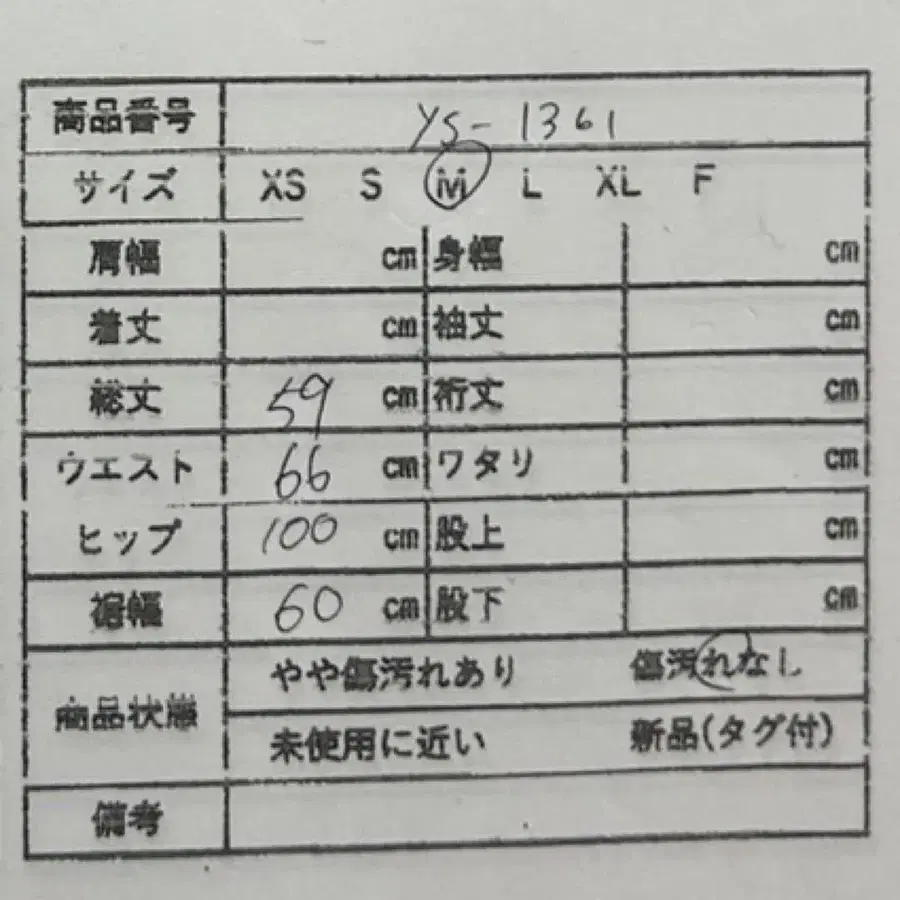 商品番号 YS-1361
サイズ XS S M L XL F
肩幅 cm 身幅 cm
着丈 cm 袖丈 cm
総丈 59 cm 裄丈 cm
ウエスト 66 cm ワタリ cm
ヒップ 100 cm 股上 cm
裾幅 60 cm 股下 cm
商品状態 やや傷汚れあり 傷汚れなし
未使用に近い 新品(タグ付)
備考